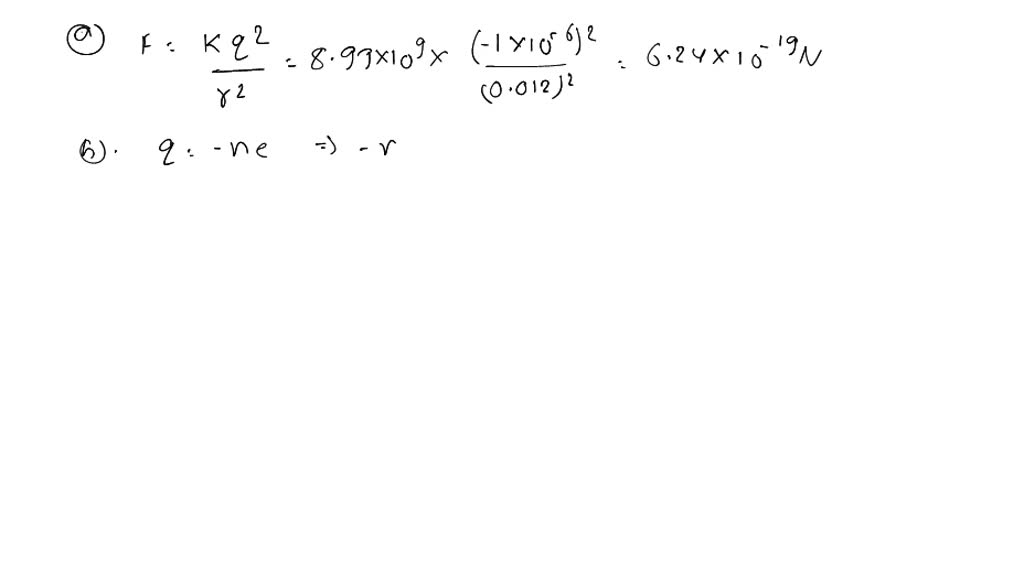 (a) F = Kq²/r² = 8.99×10⁹ × (-1×10⁻⁶)²/(0.012)² = 6.24×10⁻¹⁹N
(b). q = -ne => -r